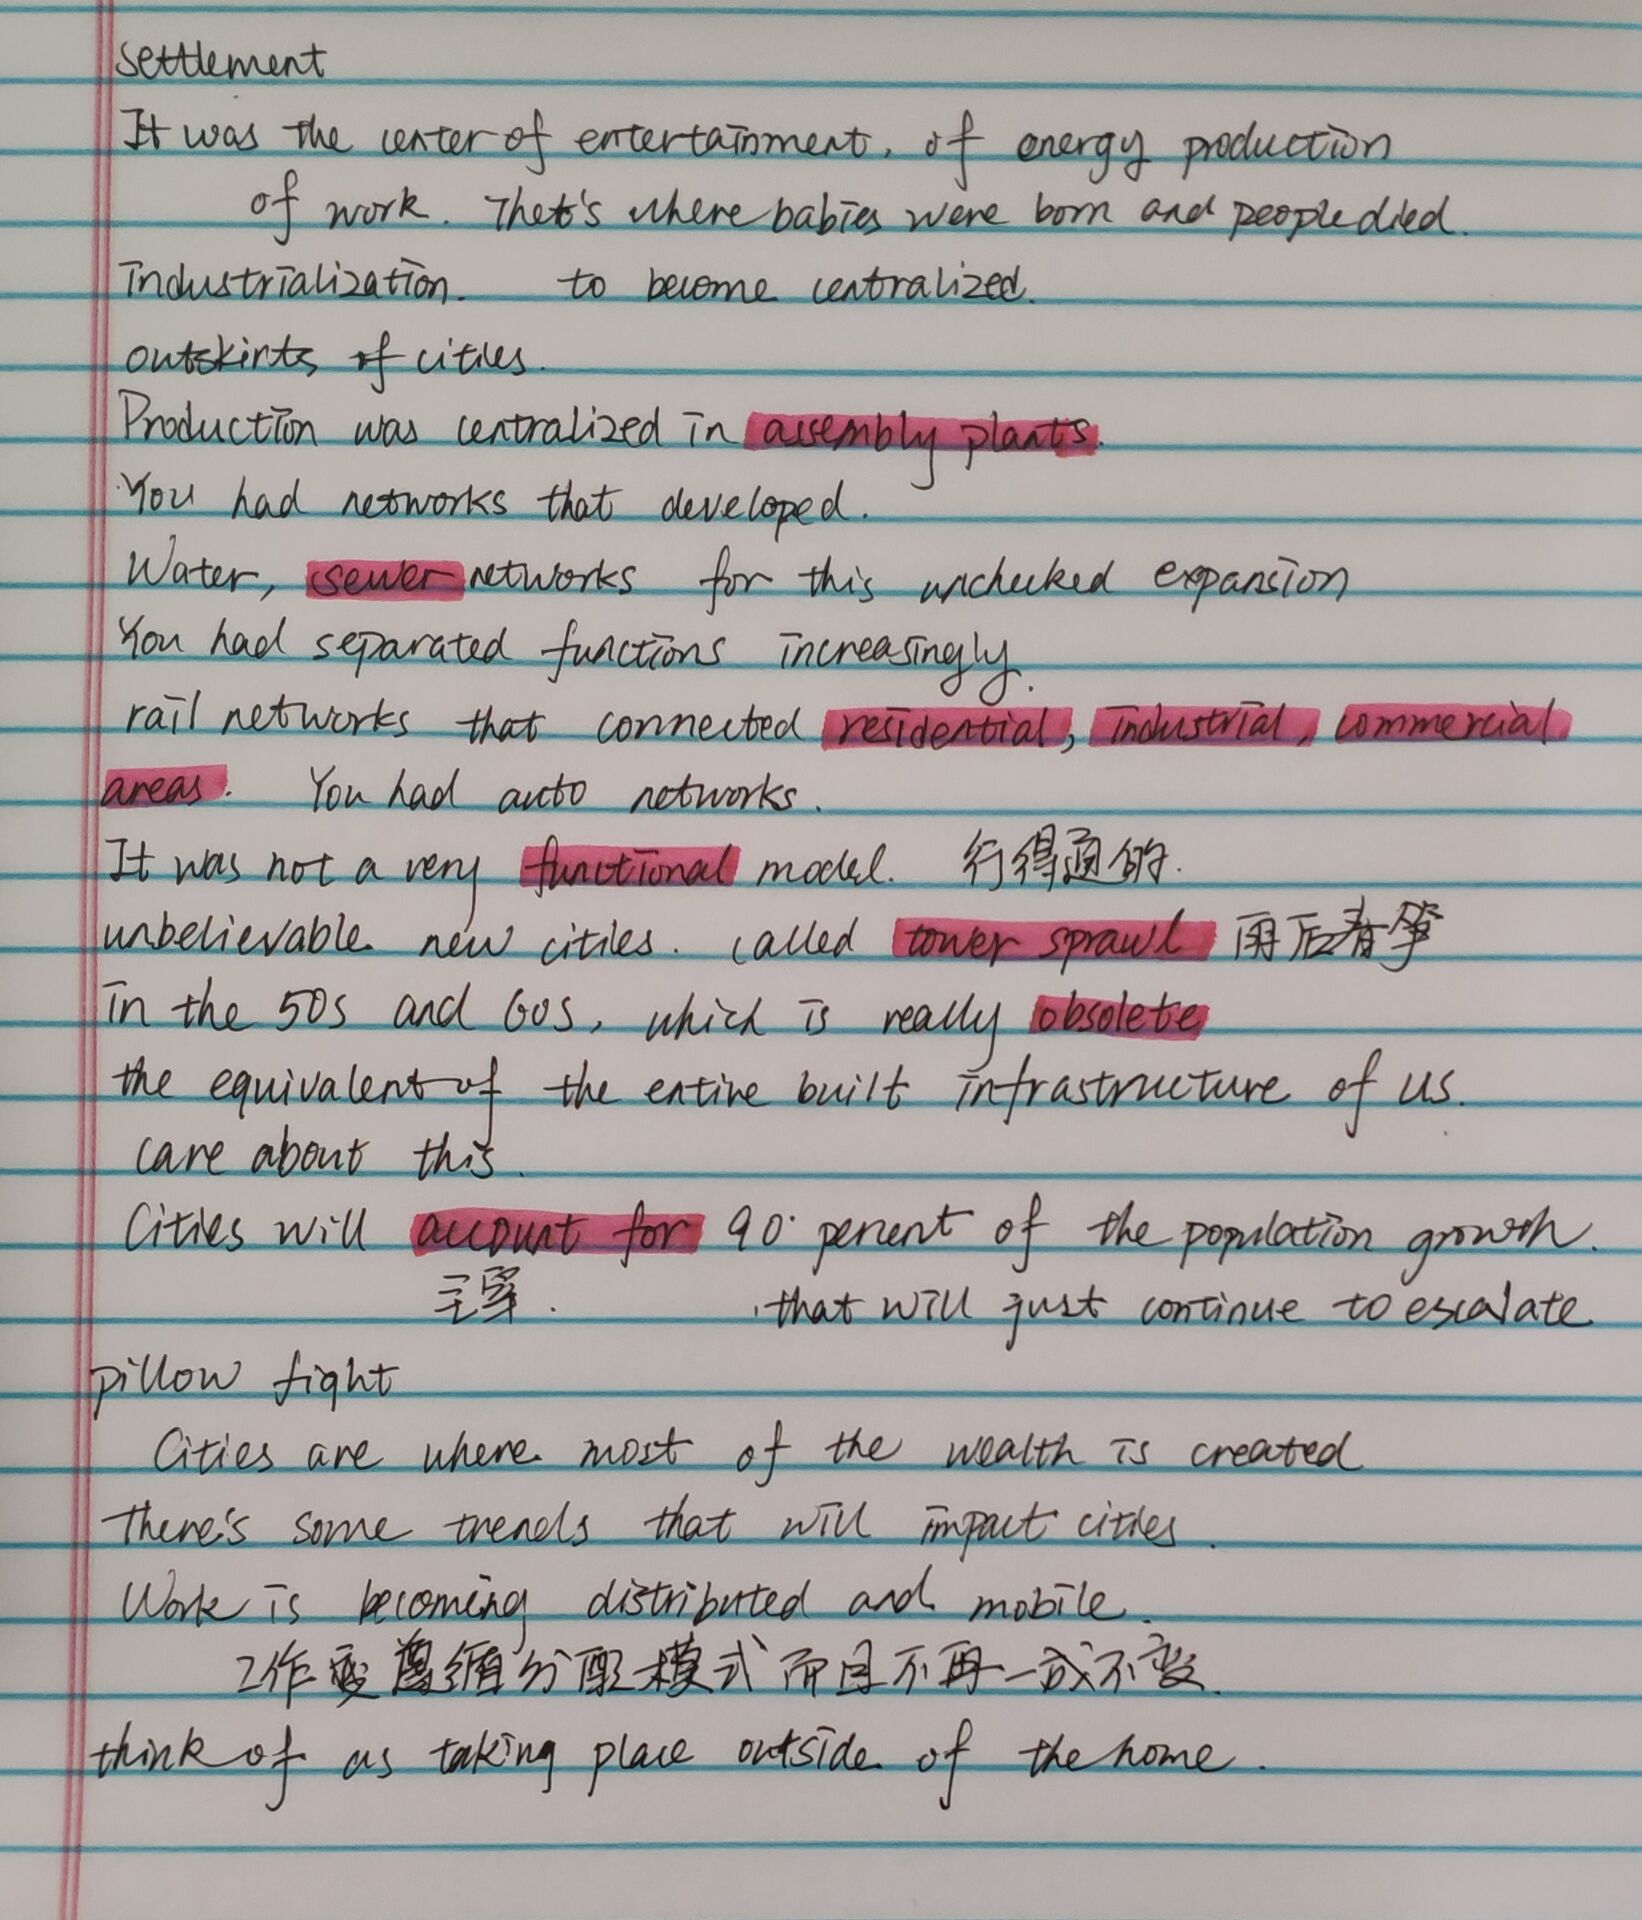 settlement
It was the center of entertainment, of energy production
of work. That's where babies were born and people died.
industrialization. to become centralized.
outskirts of cities.
Production was centralized in assembly plants.
You had networks that developed.
Water, sewer networks for this unchecked expansion
You had separated functions increasingly.
rail networks that connected residential, industrial, commercial
areas. You had auto networks.
It was not a very functional model. 行得通的.
unbelievable new cities. called tower sprawl 雨后春笋
in the 50s and 60s, which is really obsolete
the equivalent of the entire built infrastructure of US.
care about this.
Cities will account for 90 percent of the population growth.
主宰. that will just continue to escalate
pillow fight
Cities are where most of the wealth is created
There's some trends that will impact cities.
Work is becoming distributed and mobile.
工作变遵循分配模式而且不再一成不变.
think of as taking place outside of the home.